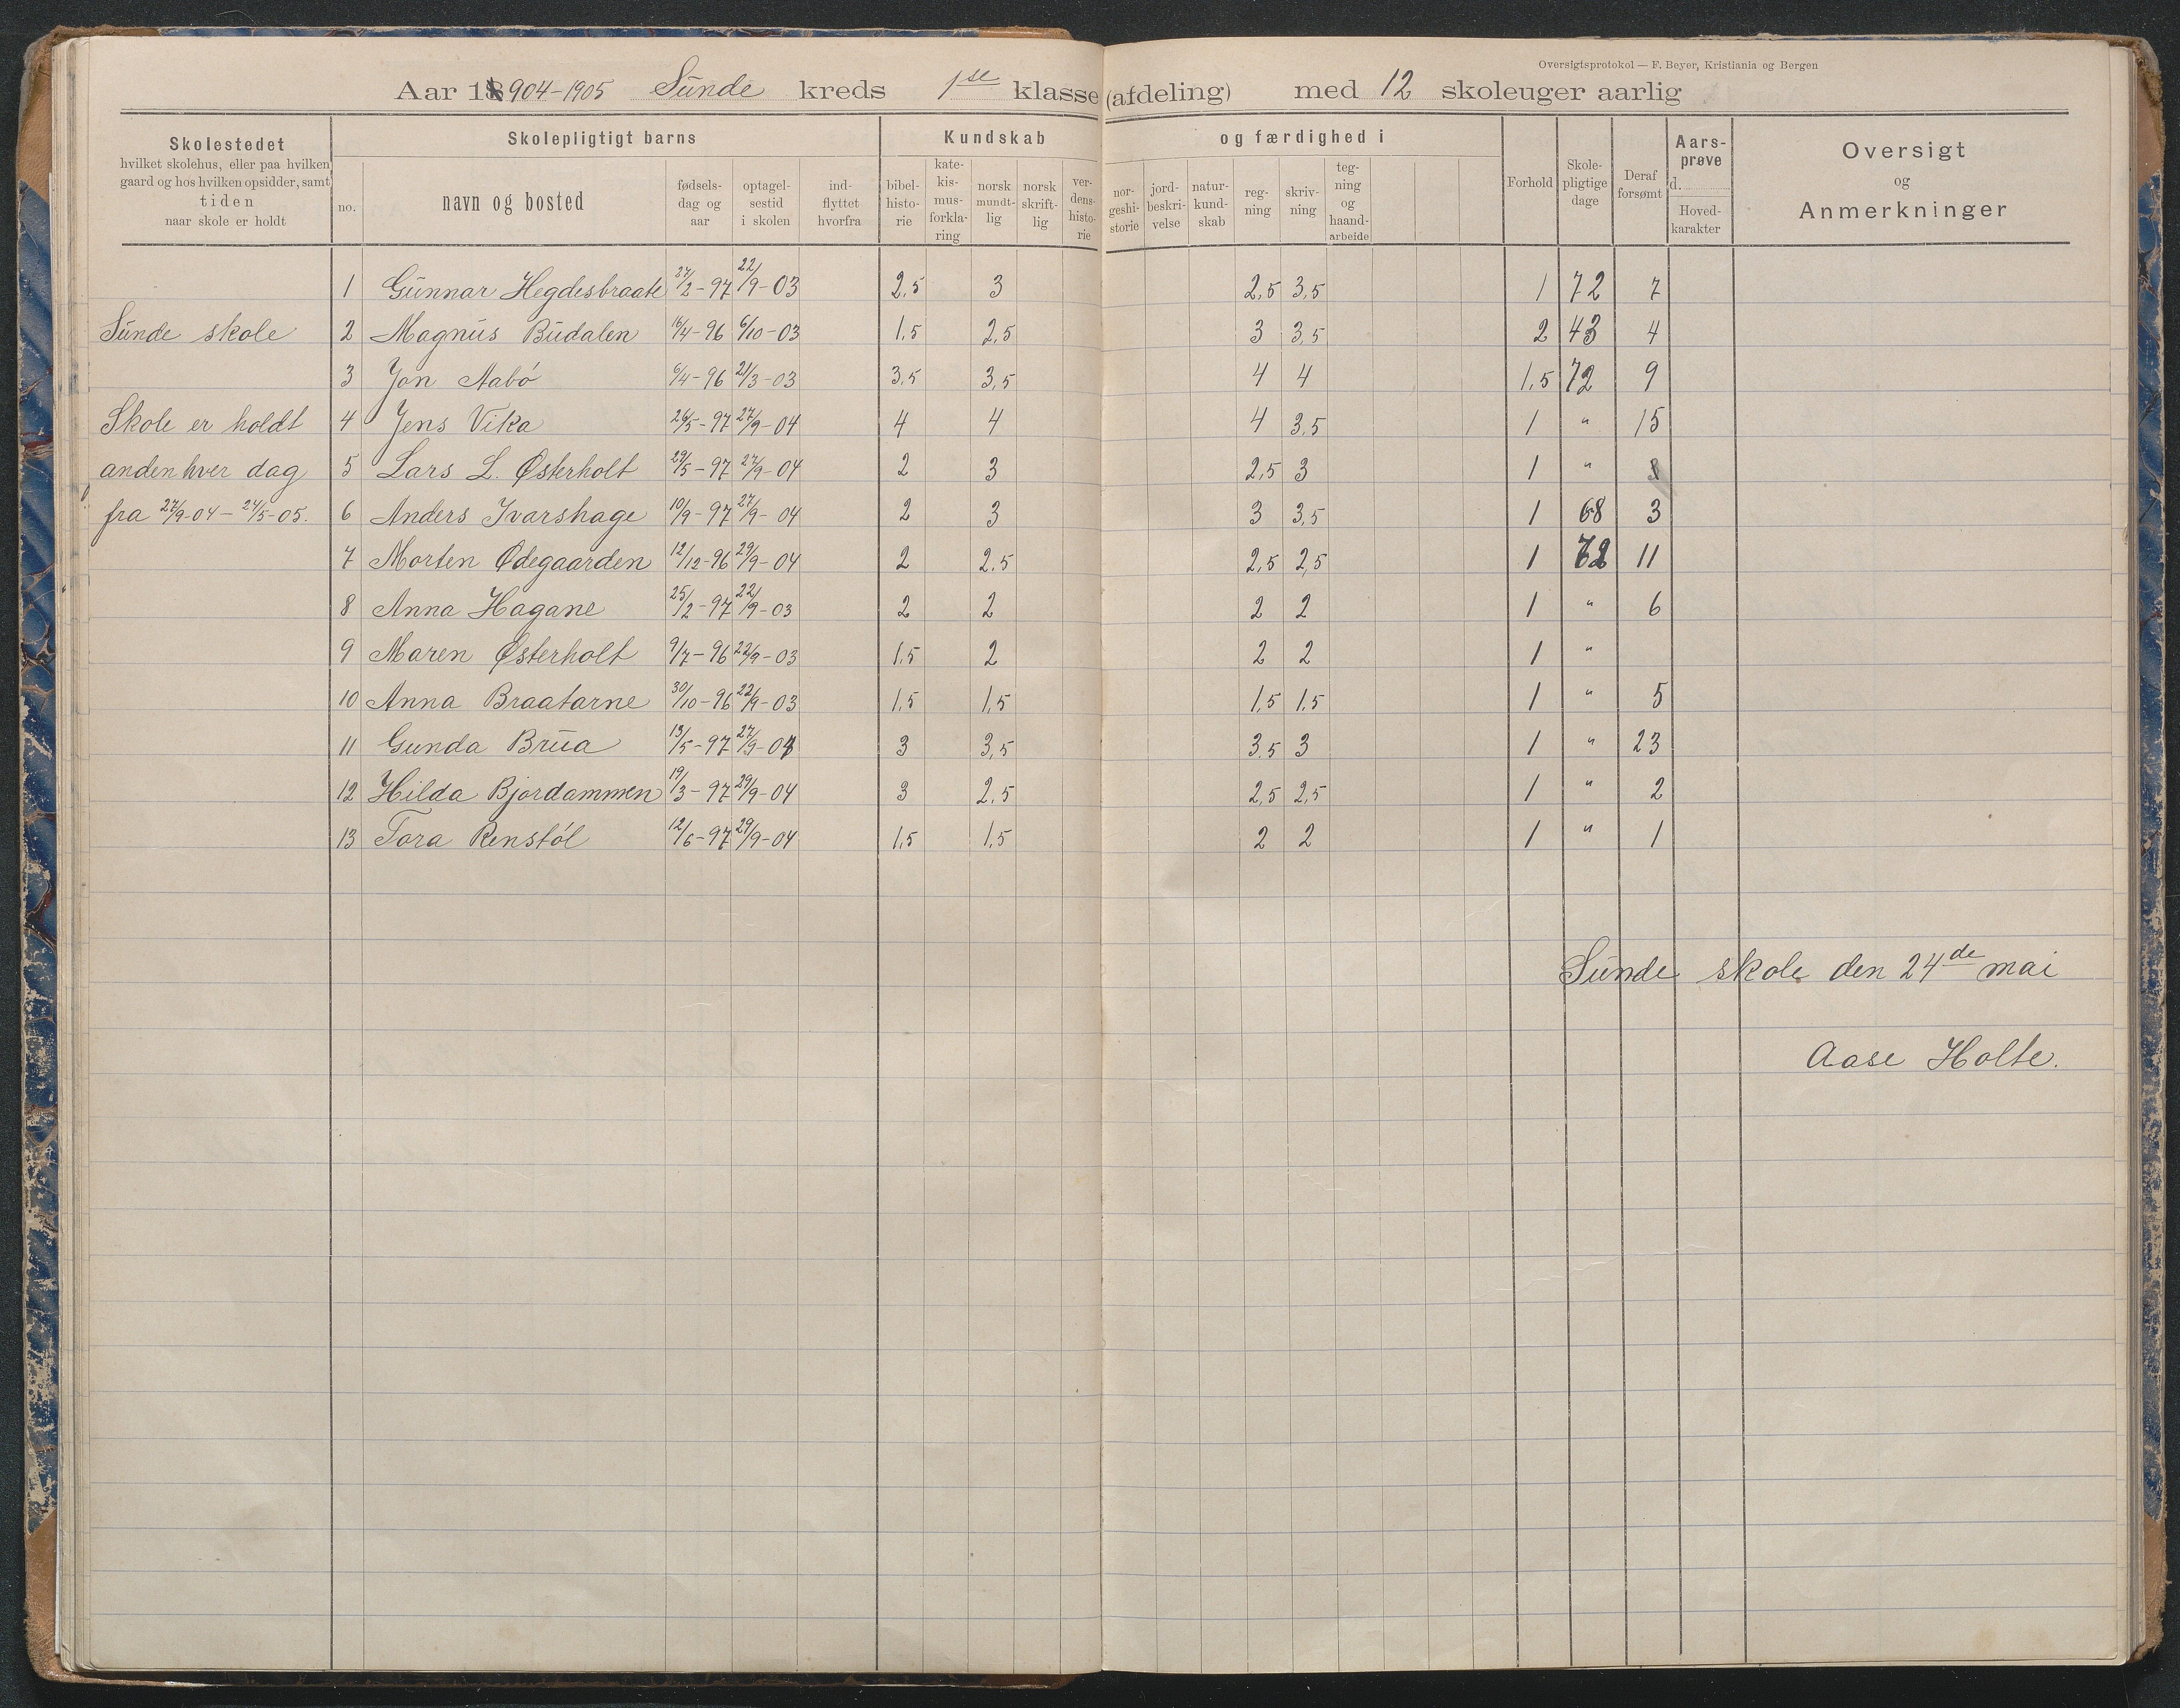 Oversigtsprotokol — F. Beyer, Kristiania og Bergen
Aar 1904-1905 Sunde kreds 1se klasse (afdeling) med 12 skoleuger aarlig
Skolestedet
hvilket skolehus, eller paa hvilken
gaard og hos hvilken opsidder, samt
tiden
naar skole er holdt
Skolepligtigt barns
no.
navn og bosted
fødsels-
dag og
aar
optagel-
sestid
i skolen
ind-
flyttet
hvorfra
Kundskab og færdighed i
bibel-
histo-
rie
kate-
kis-
mus-
forkla-
ring
norsk
mundt-
lig
norsk
skrift-
lig
ver-
dens-
histo-
rie
nor-
geshi-
storie
jord-
beskri-
velse
natur-
kund-
skab
reg-
ning
skriv-
ning
teg-
ning
og
haand-
arbeide
Forhold
Skole-
pligtige
dage
Deraf
forsømt
Aars-
prøve
d.
Hoved-
karakter
Oversigt
og
Anmerkninger
1 Gunnar Hegdesbraate 27/2-97 22/9-03 2,5 3 2,5 3,5 1 72 7
Sunde skole 2 Magnus Budalen 16/4-96 6/10-03 1,5 2,5 3 3,5 2 43 4
3 Jon Aabö 6/4-96 21/3-03 3,5 3,5 4 4 1,5 72 9
Skole er holdt 4 Jens Vika 26/5-97 27/9-04 4 4 4 3,5 1 " 15
anden hver dag 5 Lars L. Østerholt 29/5-97 27/9-04 2 3 2,5 3 1 " 8
fra 27/9-04 - 24/5-05. 6 Anders Ivarshage 10/9-97 27/9-04 2 3 3 3,5 1 68 3
7 Morten Ødegaarden 12/12-96 29/9-04 2 2,5 2,5 2,5 1 72 11
8 Anna Hagane 25/2-97 22/9-03 2 2 2 2 1 " 6
9 Maren Østerholt 9/7-96 22/9-03 1,5 2 2 2 1 "
10 Anna Braatarne 30/10-96 22/9-03 1,5 1,5 1,5 1,5 1 " 5
11 Gunda Brua 13/5-97 27/9-04 3 3,5 3,5 3 1 " 23
12 Hilda Bjordammen 19/3-97 29/9-04 3 2,5 2,5 2,5 1 " 2
13 Tora Renstöl 12/6-97 29/9-04 1,5 1,5 2 2 1 " 1
Sunde skole den 24de mai
Aase Holte.